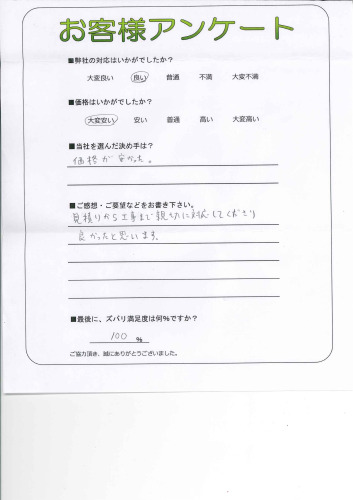 お客様アンケート
■弊社の対応はいかがでしたか？
大変良い 良い 普通 不満 大変不満
■価格はいかがでしたか？
大変安い 安い 普通 高い 大変高い
■当社を選んだ決め手は？
価格が安かった。
■ご感想・ご要望などをお書き下さい。
見積りから工事まで親切に対応してくださり
良かったと思います。
■最後に、ズバリ満足度は何%ですか？
100 %
ご協力頂き、誠にありがとうございました。